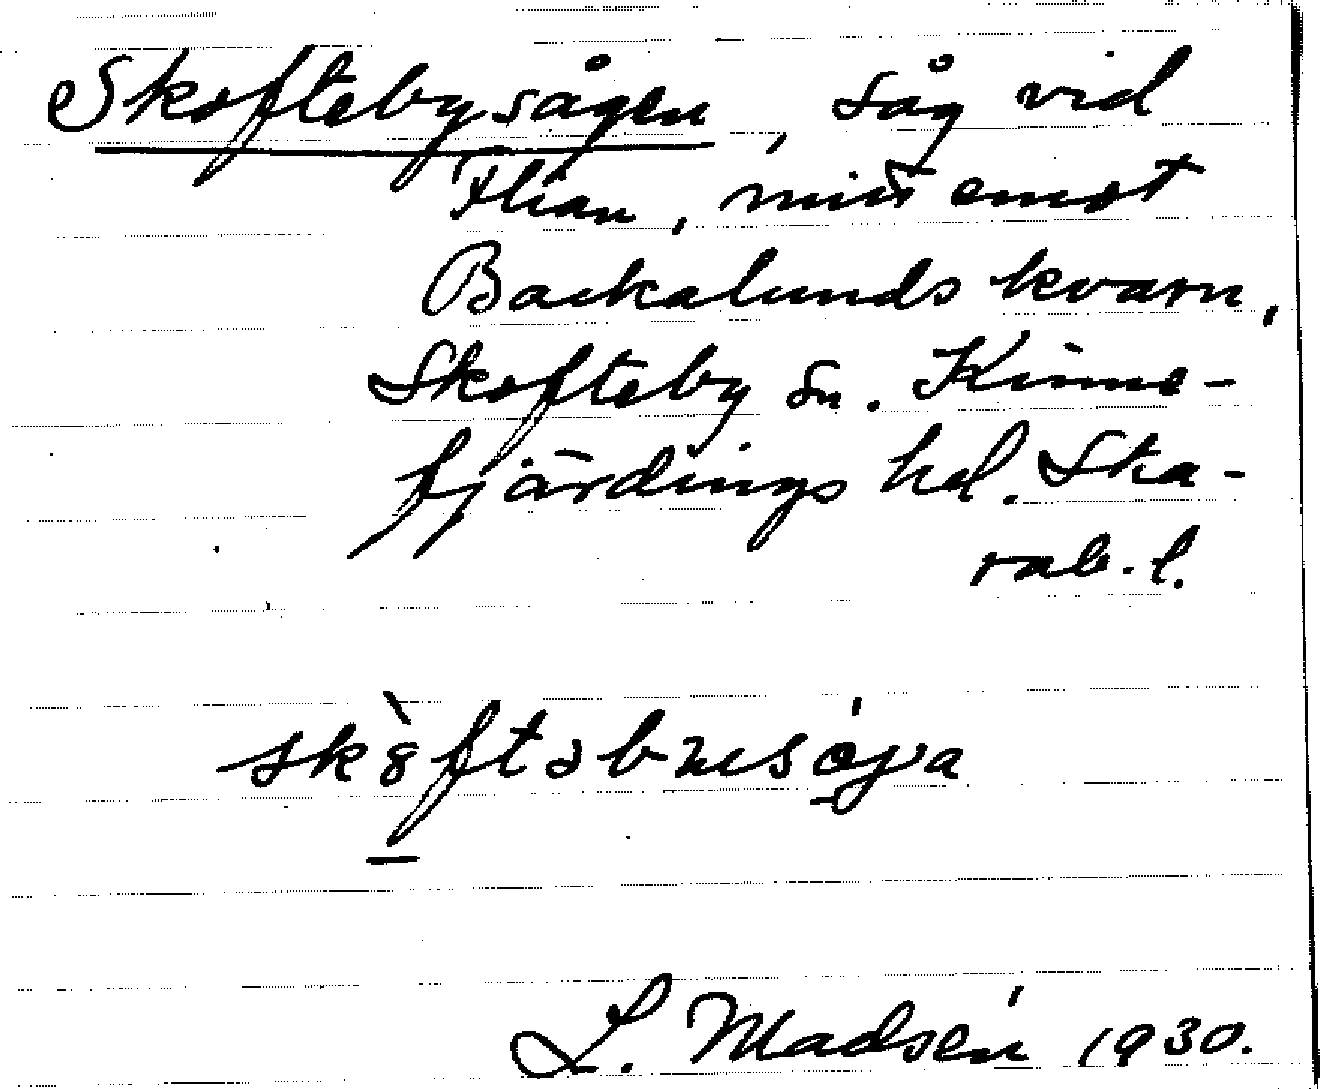 Skoftebysågen, såg vid
Flian, mitt emot
Backalunds kvarn,
Skofteby sn. Kinne-
fjärdings hd. Ska-
rab. l.
L. Madsén 1930.